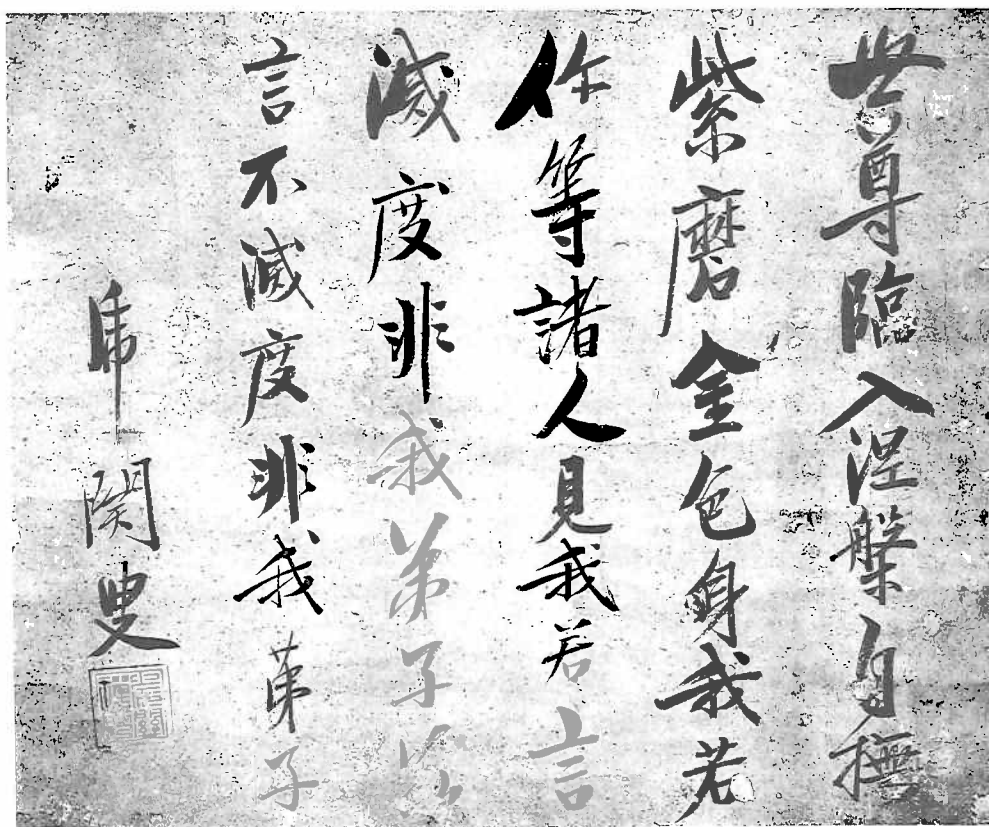 世尊臨入涅槃自撫
紫磨金色身我若
你等諸人見我若言
滅度非我弟子
言不滅度非我弟子
虎関叟